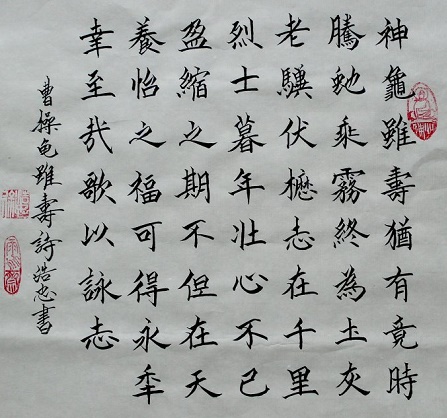 神龜雖壽猶有竟時
騰虵乘霧終為圡灰
老驥伏櫪志在千里
烈士暮年壯心不已
盈縮之期不但在天
養怡之福可得永年
幸至哉歌以詠志
曹操龟雖壽詩浩忠書